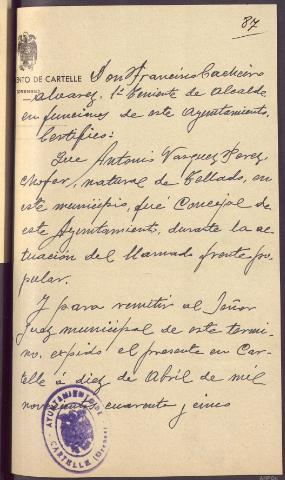 87
ENTO DE CARTELLE Don Francisco Cacheiro
(ORENSE)
Alvarez, 1º teniente de Alcalde
en funciones de este Ayuntamiento,
Certifico:
Que Antonio Vazquez Perez
Chofer, natural de Tellado, en
este municipio, fue Concejal de
este Ayuntamiento, durante la ac-
tuación del llamado frente po-
pular.
Y para remitir al Señor
Juez municipal de este termi-
no, expido el presente en Car-
telle á diez de Abril de mil
novecientos cuarenta y cinco
AYUNTAMIENTO DE
CARTELLE (Orense)